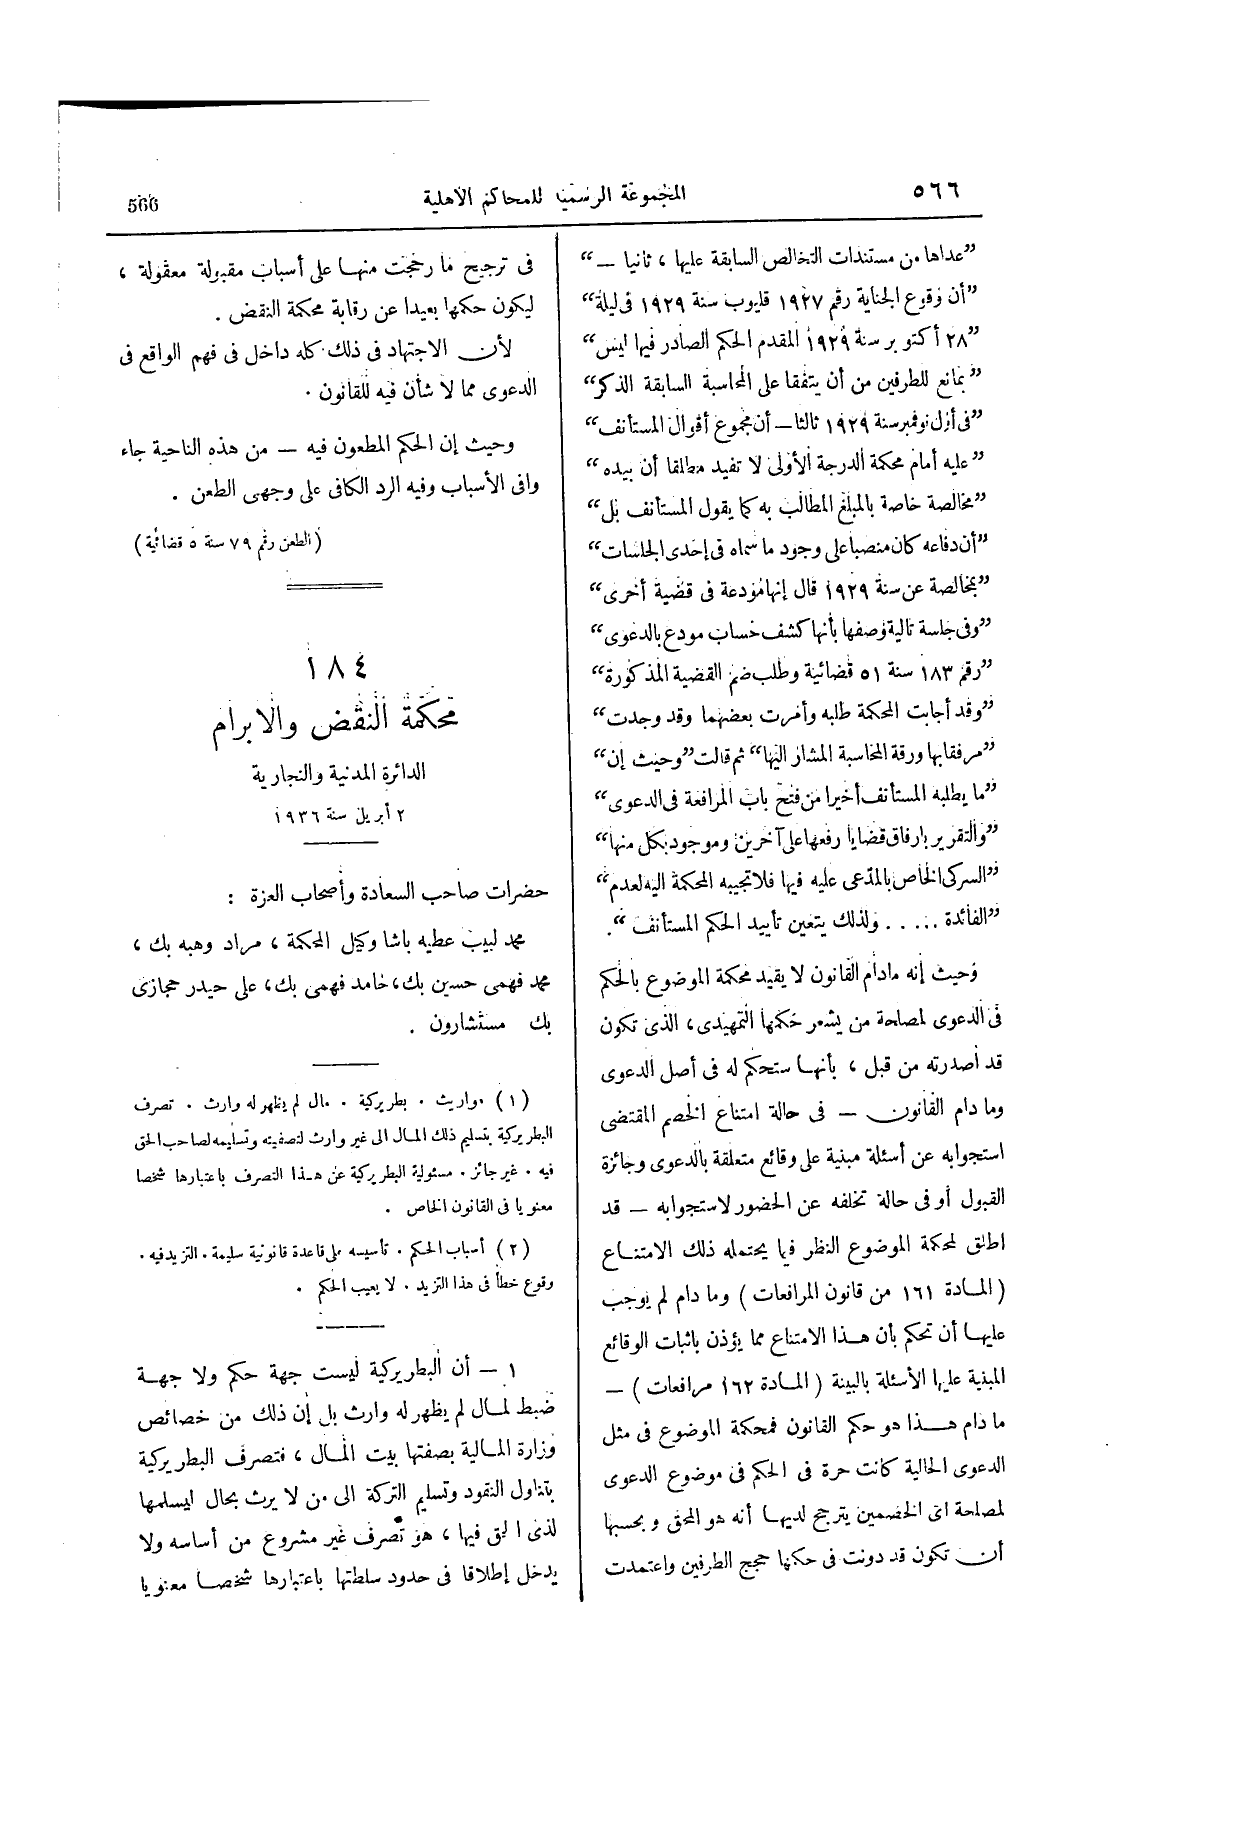 ٥٦٦
المجموعة الرسمية للمحاكم الأهلية
566
”عداها من مستندات التخالص السابقة عليها ، ثانيا —“
”أن وقوع الجناية رقم ١٩٢٧ قليوب سنة ١٩٢٩ فى ليلة“
”٢٨ أكتوبر سنة ١٩٢٩ المقدم الحكم الصادر فيها ليس“
”بمانع للطرفين من أن يتفقا على المحاسبة السابقة الذكر“
”فى أول نوفمبر سنة ١٩٢٩ ثالثا — أن مجموع أقوال المستأنف“
”عليه أمام محكمة الدرجة الأولى لا تفيد مطلقا أن بيده“
”مخالصة خاصة بالمبلغ المطالب به كما يقول المستأنف بل“
”أن دفاعه كان منصبا على وجود ما سماه فى إحدى الجلسات“
”بمخالصة عن سنة ١٩٢٩ قال إنها مودعة فى قضية أخرى“
”وفى جلسة تالية وصفها بأنها كشف حساب مودع بالدعوى“
”رقم ١٨٣ سنة ٥١ قضائية وطلب ضم القضية المذكورة“
”وقد أجابت المحكمة طلبه وأمرت بعضهما وقد وجدت“
”مرفقا بها ورقة المحاسبة المشار اليها“ ثم قالت ”وحيث إن“
”ما يطلبه المستأنف أخيرا من فتح باب المرافعة فى الدعوى“
”والتقرير بارفاق قضايا رفعها على آخرين وموجود بكل منها“
”السركى الخاص بالمدعى عليه فيها فلا تجيبه المحكمة اليه لعدم“
”الفائدة ..... ولذلك يتعين تأييد الحكم المستأنف“.
وحيث إنه مادام القانون لا يقيد محكمة الموضوع بالحكم
فى الدعوى لمصلحة من يشعر حكمها التمهيدى، الذى تكون
قد أصدرته من قبل ، بأنها ستحكم له فى أصل الدعوى
وما دام القانون — فى حالة امتناع الخصم المقتضى
استجوابه عن أسئلة مبنية على وقائع متعلقة بالدعوى وجائزة
القبول أو فى حالة تخلفه عن الحضور لاستجوابه — قد
اطلق لمحكمة الموضوع النظر فيما يحتمله ذلك الامتناع
(المادة ١٦١ من قانون المرافعات) وما دام لم يوجب
عليها أن تحكم بأن هذا الامتناع مما يؤذن باثبات الوقائع
المبنية عليها الأسئلة بالبينة (المادة ١٦٢ مرافعات) —
ما دام هذا هو حكم القانون فمحكمة الموضوع فى مثل
الدعوى الحالية كانت حرة فى الحكم فى موضوع الدعوى
لمصلحة اى الخصمين يترجح لديها أنه هو المحق وبحسبها
أن تكون قد دونت فى حكمها حجج الطرفين واعتمدت
فى ترجيح ما رجحت منها على أسباب مقبولة معقولة ،
ليكون حكمها بعيدا عن رقابة محكمة النقض .
لأن الاجتهاد فى ذلك كله داخل فى فهم الواقع فى
الدعوى مما لا شأن فيه للقانون .
وحيث إن الحكم المطعون فيه — من هذه الناحية جاء
وافى الأسباب وفيه الرد الكافى على وجهى الطعن .
(الطعن رقم ٧٩ سنة ٥ قضائية)
١٨٤
محكمة النقض والابرام
الدائرة المدنية والتجارية
٢ أبريل سنة ١٩٣٦
حضرات صاحب السعادة وأصحاب العزة :
محمد لبيب عطيه باشا وكيل المحكمة ، مراد وهبه بك ،
محمد فهمى حسين بك، حامد فهمى بك، على حيدر حجازى
بك مستشارون .
(١) مواريث . بطريركية . مال لم يظهر له وارث . تصرف
البطريركية بتسليم ذلك المال الى غير وارث لتصفيته وتسليمه لصاحب الحق
فيه . غير جائز . مسئولية البطريركية عن هذا التصرف باعتبارها شخصا
معنويا فى القانون الخاص .
(٢) أسباب الحكم . تأسيسه على قاعدة قانونية سليمة . التزيد فيه .
وقوع خطأ فى هذا التزيد . لا يعيب الحكم .
١ — أن البطريركية ليست جهة حكم ولا جهة
ضبط لمال لم يظهر له وارث بل إن ذلك من خصائص
وزارة المالية بصفتها بيت المال ، فتصرف البطريركية
بتناول النقود وتسليم التركة الى من لا يرث بحال ليسلمها
لذى الحق فيها ، هو تصرف غير مشروع من أساسه ولا
يدخل إطلاقا فى حدود سلطتها باعتبارها شخصا معنويا